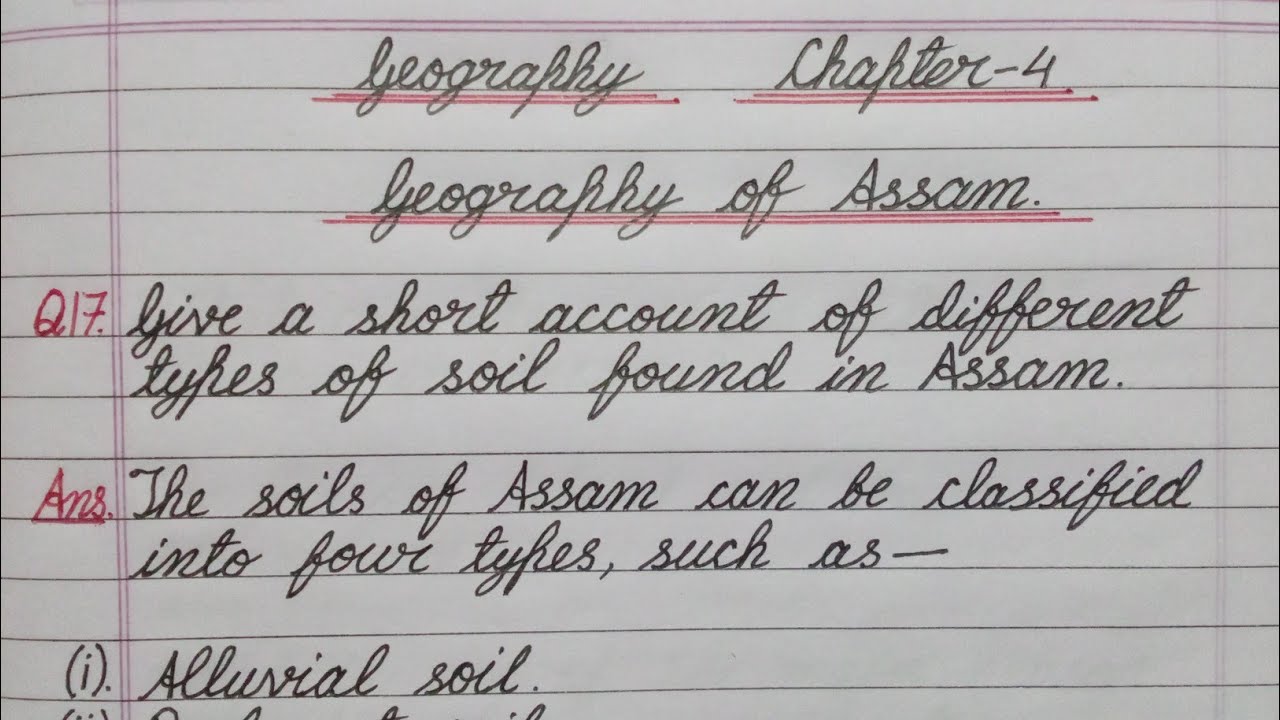 Geography Chapter-4
Geography of Assam.
Q17. Give a short account of different
types of soil found in Assam.
Ans. The soils of Assam can be classified
into four types, such as—
(i). Alluvial soil.